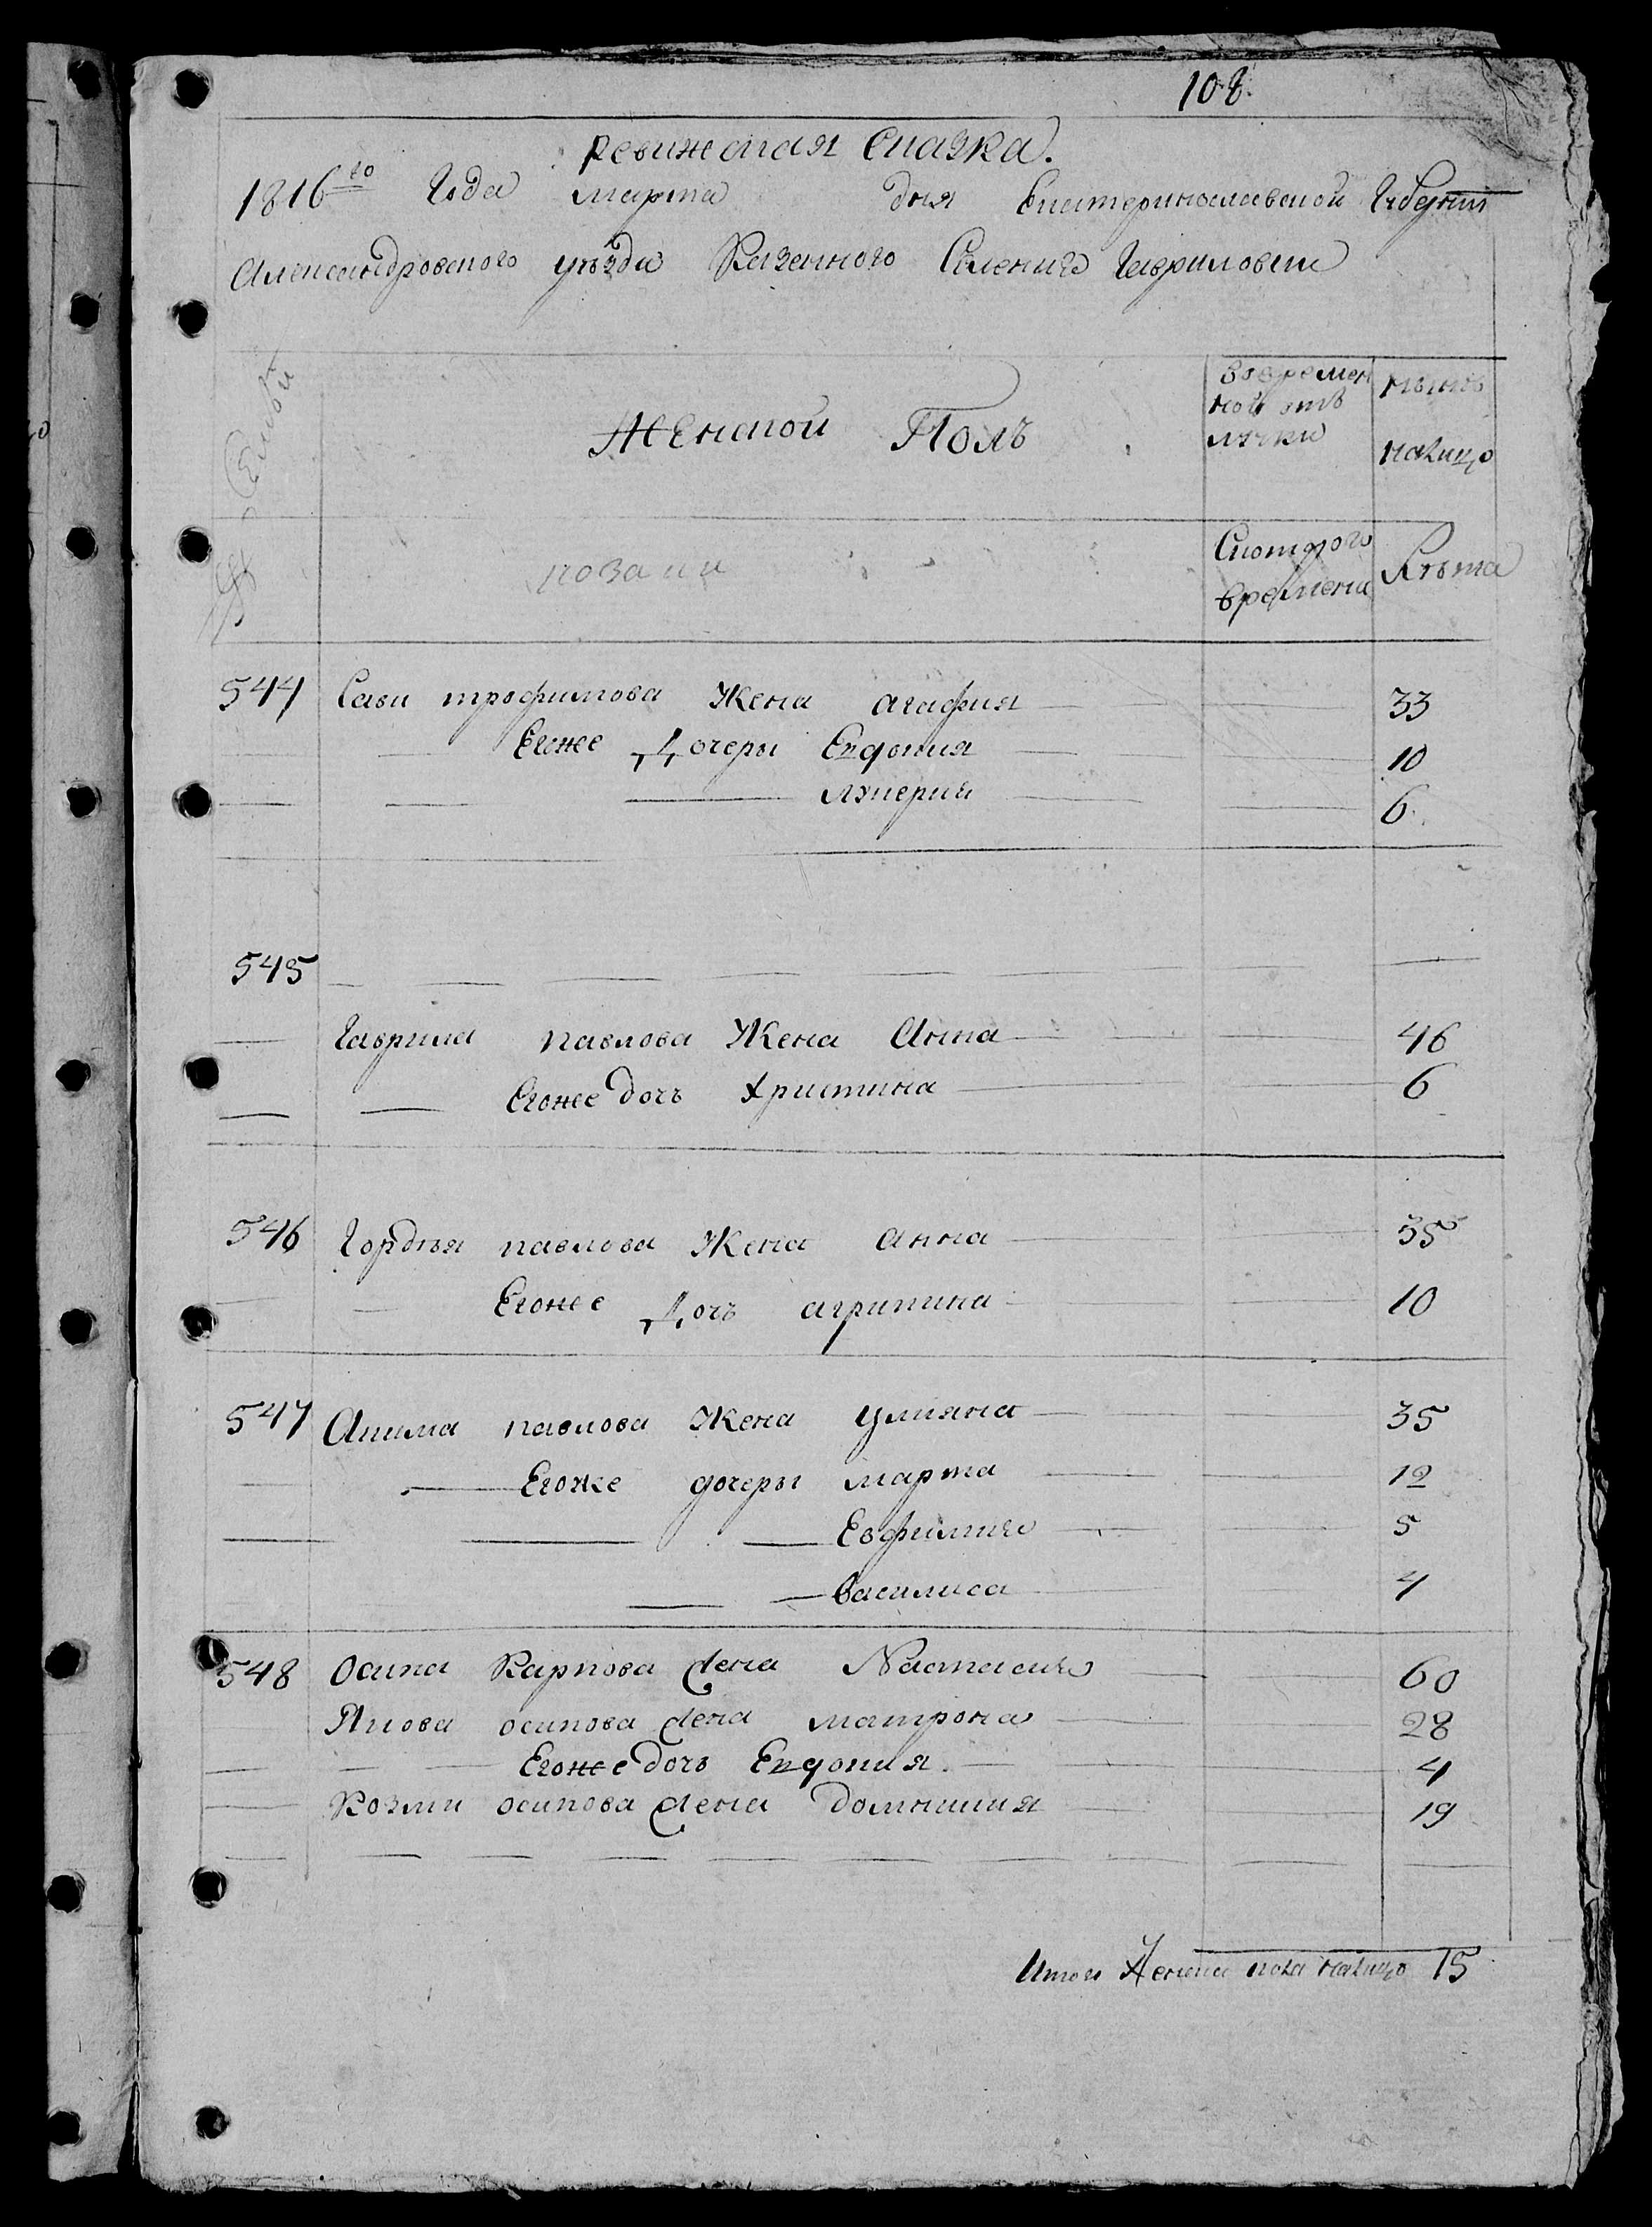 108.
ревижская сказка.
1816го Года марта дня Екатеринославской Губернии
Александровского уезда Казенного Селения Гавриловки
№ Семьи
Женской Полъ
Вовремен
ной отъ
лучки
нынѣ
налицо
Скоторого
времена
Лѣта
544 Сави трофимова Жена агафия 33
Егоже Дочеры Евдокия 10
Лукерия 6.
545
Гаврила павлова Жена Анна 46
Егоже дочъ Христина 6
546 Гордѣя павлова Жена анна 35
Егоже Дочъ агрипина 10
547 Акима павлова Жена улияна 35
Егоже дочеры марта 12
Евфимия 5
василиса 4
548 Осипа Карпова жена Настасия 60
Якова осипова жена матрона 28
Егоже дочъ Евдокия 4
Козми осипова жена домникия 19
Итого Женска пола налицо 15